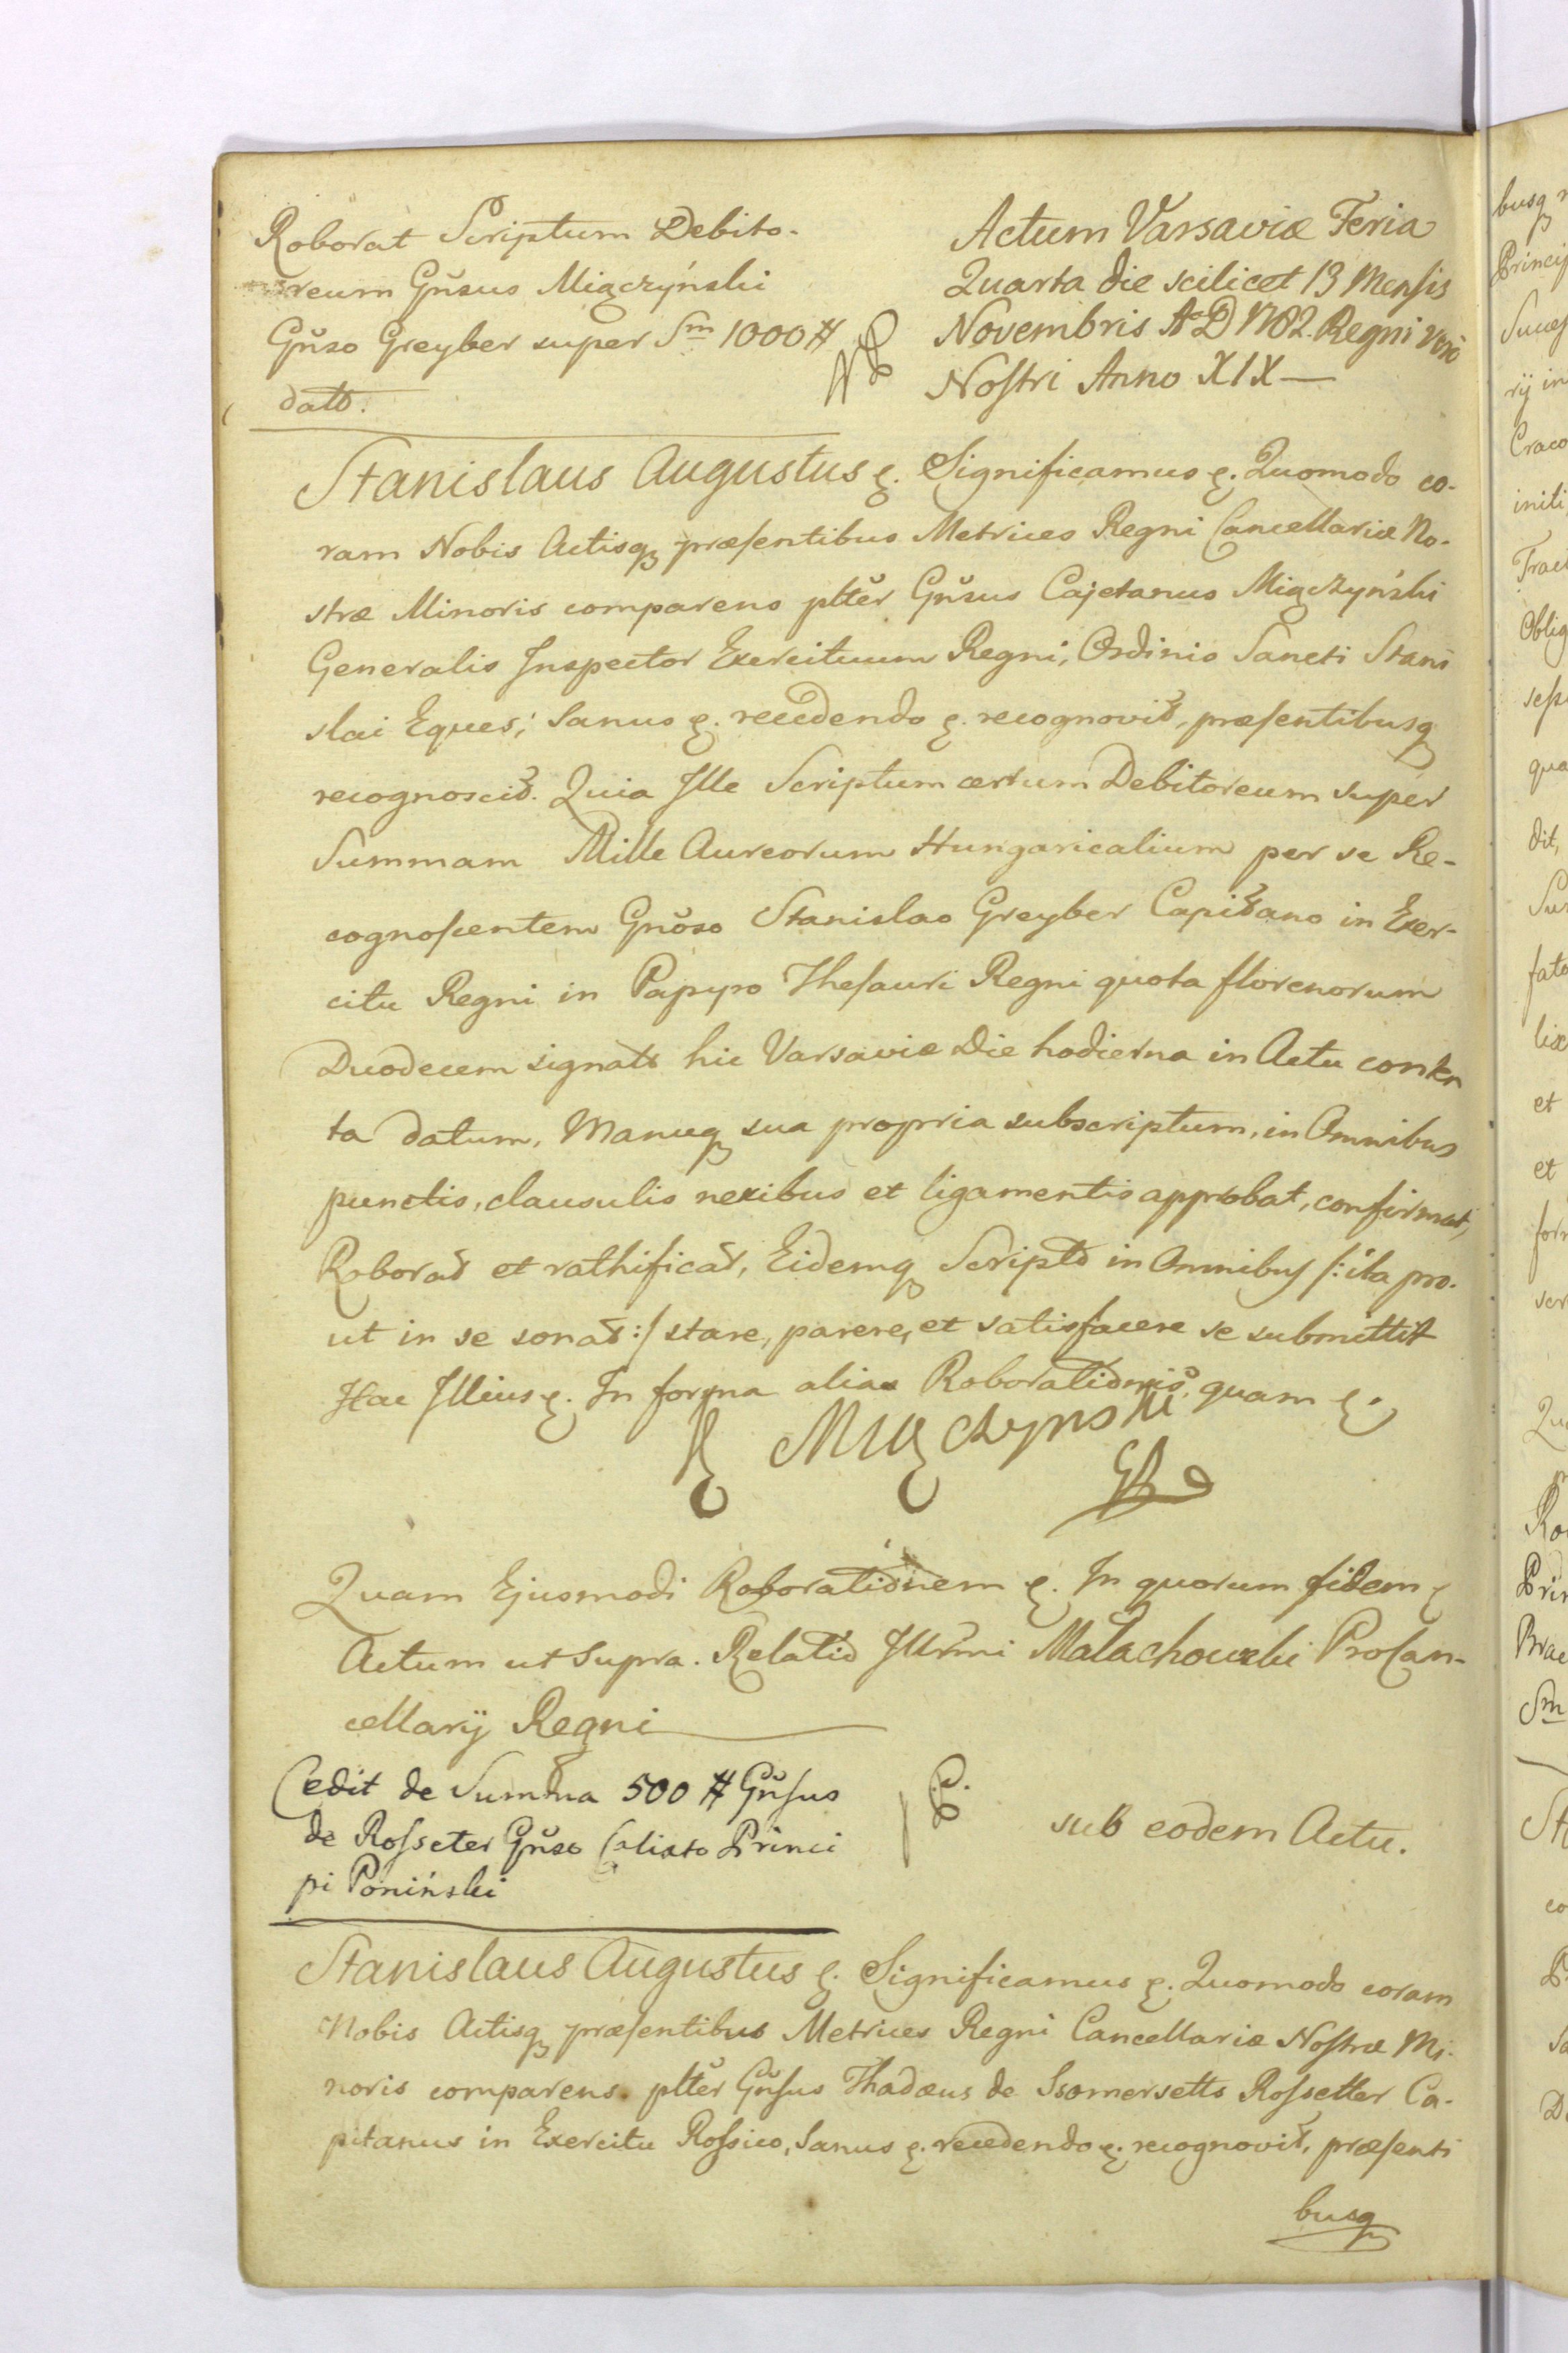 Roborat Scriptum Debito-
reum Gnŏsus Miączyński
Gnŏso Greyber super Sm 1000 #
datŏ.
Actum Varsaviæ Feria
Quarta die scilicet 13 Mensis
Novembris A D 1782. Regni verò
Nostri Anno XIX —
Stanislaus Augustus &. Significamus &. Quomodo co-
ram Nobis Actisq præsentibus Metrices Regni Cancellariæ No-
stræ Minoris comparens pltĕr Gnŏsus Cajetanus Miączyński
Generalis Inspector Exercituum Regni, Ordinis Sancti Stani
slai Eques; Sanus &. recedendo &. recognovit, præsentibusq
recognoscit. Quia Ille Scriptum certum Debitoreum super
Summam Mille Aureorum Hungaricalium per se Re-
cognoscentem Gnŏso Stanislao Greyber Capitano in Exer-
citu Regni in Papyro Thesauri Regni quota florenorum
Duodecem signatŏ hic Varsaviæ Die hodierna in Actu conten
ta datum, Manuq sua propria subscriptum, in Omnibus
punctis, clausulis nexibus et ligamentis approbat, confirmat,
Roborat et rathificat, Eidemq Scriptŏ in Omnibus /: ita pro-
ut in se sonat :/ stare, parere, et satisfacere se submittit
Hac Illius &. In forma alias Roborationis, quam &.
K Miączynski
GR
Quam Ejusmodi Roborationem &. In quorum fidem &
Actum ut Supra. Relatio Illr̃mi Małachowski ProCan-
cellarij Regni
Cedit de Summa 500 # Gnŏsus
de Rosseter Gnŏso Calixto Princi
pi Poniński
sub eodem Actu.
Stanislaus Augustus &. Significamus &. Quomodo coram
Nobis Actisq præsentibus Metrices Regni Cancellariæ Nostræ Mi-
noris comparens pltĕr Gnŏsus Thadæus de Ssomersetts Rossetter Ca-
pitanus in Exercitu Rossico, Sanus &. recedendo &. recognovit, præsenti
busq